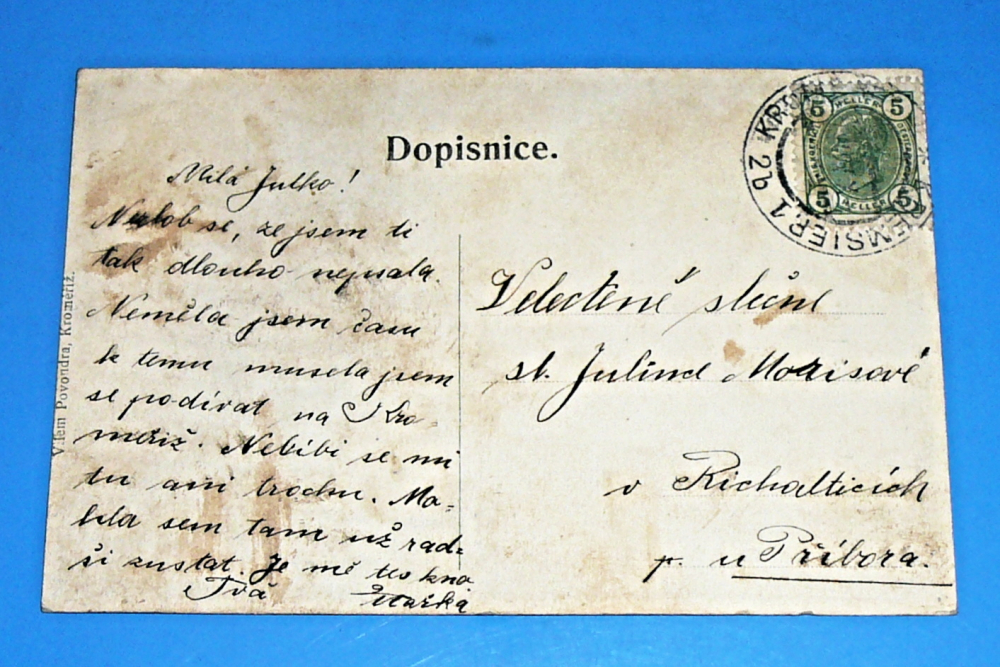 Dopisnice.
Milá Julko!
Nezlob se, že jsem ti
tak dlouho nepsala.
Neměla jsem času
k temu musela jsem
se podívat na Kro-
měříž. Nelíbí se mi
tu ani trochu. Mo-
hla sem tam už rad=
ši zustat. Je mě teskno
Tvá
Vilém Povondra, Kroměříž.
5 HELLER 5
5 HELLER 5
KR
EMSIER 1
2b
Velectěné slečně
sl. Julince Morisové
v Richalticích
p. u Příbora.